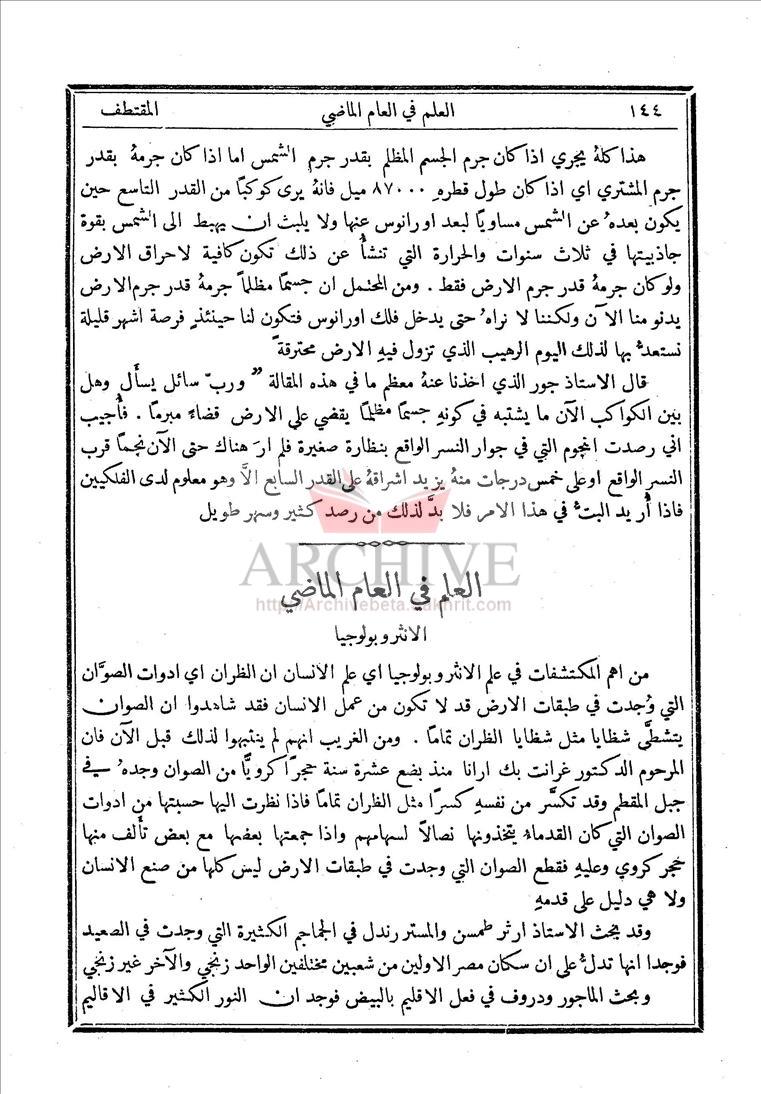 ١٤٤ العلم في العام الماضي المقتطف
هذا كلهُ يجري اذا كان جرم الجسم المظلم بقدر جرم الشمس اما اذا كان جرمهُ بقدر
جرم المشتري اي اذا كان طول قطرهِ ٨٧٠٠٠ ميل فانهُ يرى كوكباً من القدر التاسع حين
يكون بعدهُ عن الشمس مساوياً لبعد اورانوس عنها ولا يلبث ان يهبط الى الشمس بقوة
جاذبيتها في ثلاث سنوات والحرارة التي تنشأُ عن ذلك تكون كافية لاحراق الارض
ولو كان جرمهُ قدر جرم الارض فقط . ومن المحتمل ان جسماً مظلماً جرمهُ قدر جرم الارض
يدنو منا الآن ولكننا لا نراهُ حتى يدخل فلك اورانوس فتكون لنا حينئذٍ فرصة اشهر قليلة
نستعدُّ بها لذلك اليوم الرهيب الذي تزول فيهِ الارض محترقةً
قال الاستاذ جور الذي اخذنا عنهُ معظم ما في هذه المقالة " وربّ سائل يسأَل وهل
بين الكواكب الآن ما يشتبه في كونهِ جسماً مظلماً يقضي على الارض قضاءً مبرماً . فأُجيب
اني رصدت النجوم التي في جوار النسر الواقع بنظارة صغيرة فلم ارَ هناك حتى الآن نجماً قرب
النسر الواقع او على خمس درجات منهُ يزيد اشراقهُ على القدر السابع الاَّ وهو معلوم لدى الفلكيين
فاذا أُريد البتُّ في هذا الامر فلا بدَّ لذلك من رصد كثير وسهر طويل
ARCHIVE
العلم في العام الماضي
http://Archivebeta.Sakhrit.com
الانثروبولوجيا
من اهم المكتشفات في علم الانثروبولوجيا اي علم الانسان ان الظران اي ادوات الصوَّان
التي وُجدت في طبقات الارض قد لا تكون من عمل الانسان فقد شاهدوا ان الصوان
يتشظَّى شظايا مثل شظايا الظران تماماً . ومن الغريب انهم لم ينتبهوا لذلك قبل الآن فان
المرحوم الدكتور غرانت بك ارانا منذ بضع عشرة سنة حجراً كرويًّا من الصوان وجدهُ في
جبل المقطم وقد تكسَّر من نفسهِ كسراً مثل الظران تماماً فاذا نظرت اليها حسبتها من ادوات
الصوان التي كان القدماءُ يتخذونها نصالاً لسهامهم واذا جمعتها بعضها مع بعض تأَلف منها
حجر كروي وعليهِ فقطع الصوان التي وجدت في طبقات الارض ليس كلها من صنع الانسان
ولا هي دليل على قدمهِ
وقد بحث الاستاذ ارثر طمسن والمستر رندل في الجماجم الكثيرة التي وجدت في الصعيد
فوجدا انها تدلُّ على ان سكان مصر الاولين من شعبين مختلفين الواحد زنجي والآخر غير زنجي
وبحث الماجور ودروف في فعل الاقليم بالبيض فوجد ان النور الكثير في الاقاليم